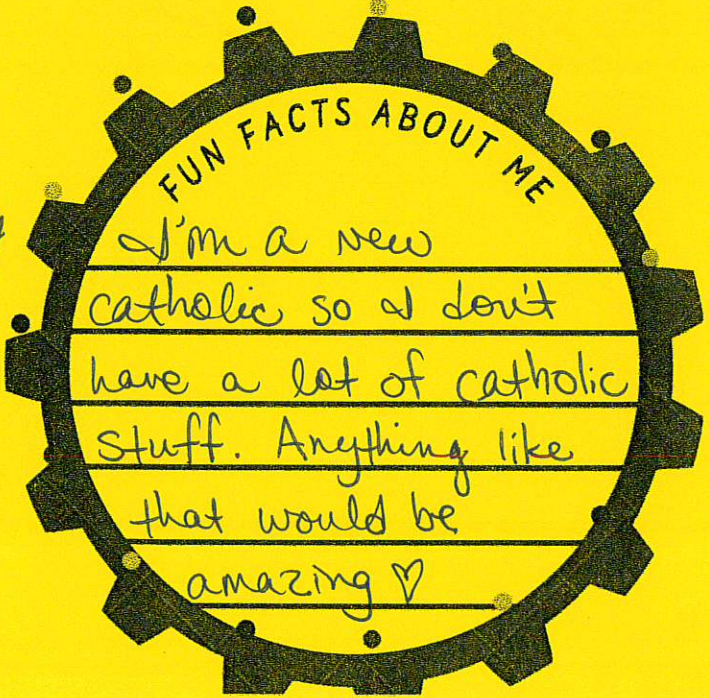 FUN FACTS ABOUT ME
I'm a new
catholic so I don't
have a lot of catholic
stuff. Anything like
that would be
amazing ♡